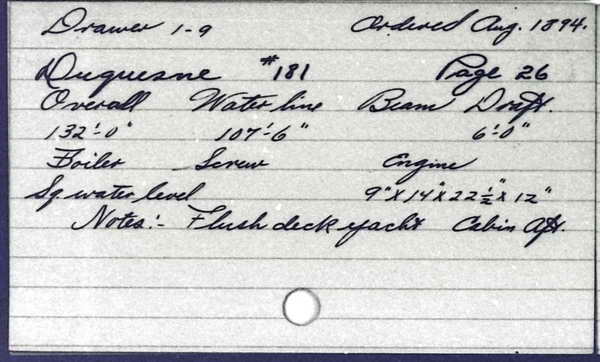 Drawer 1-9 Ordered Aug. 1894.
Duquesne #181 Page 26
Overall Water line Beam Draft.
132'-0" 107'-6" 6'-0"
Boiler Screw Engine
Sq water level 9"X14"X22½"X12"
Notes:- Flush deck yacht Cabin Aft.